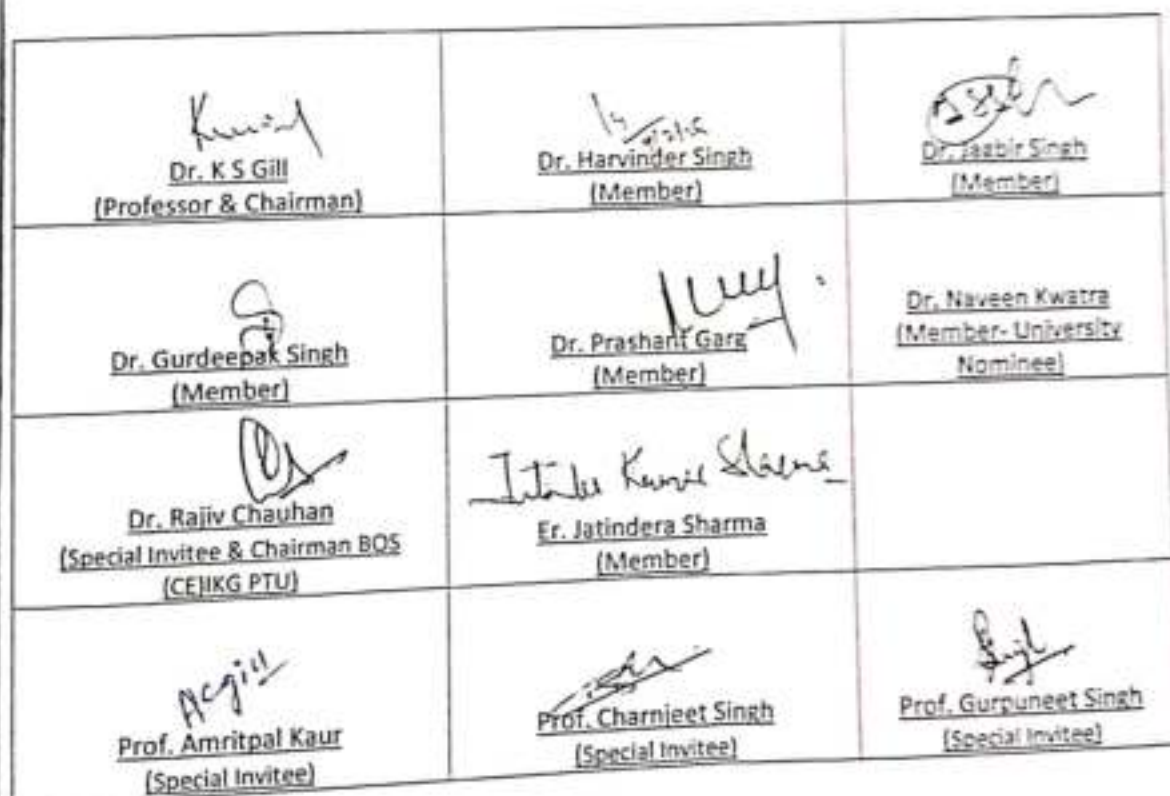 Dr. K S Gill
(Professor & Chairman)
Dr. Harvinder Singh
(Member)
Dr. Jasbir Singh
(Member)
Dr. Gurdeepak Singh
(Member)
Dr. Prashant Garg
(Member)
Dr. Naveen Kwatra
(Member- University
Nominee)
Dr. Rajiv Chauhan
(Special Invitee & Chairman BOS
(CE)IKG PTU)
Er. Jatindera Sharma
(Member)
Prof. Amritpal Kaur
(Special Invitee)
Prof. Charnjeet Singh
(Special Invitee)
Prof. Gurpuneet Singh
(Special Invitee)